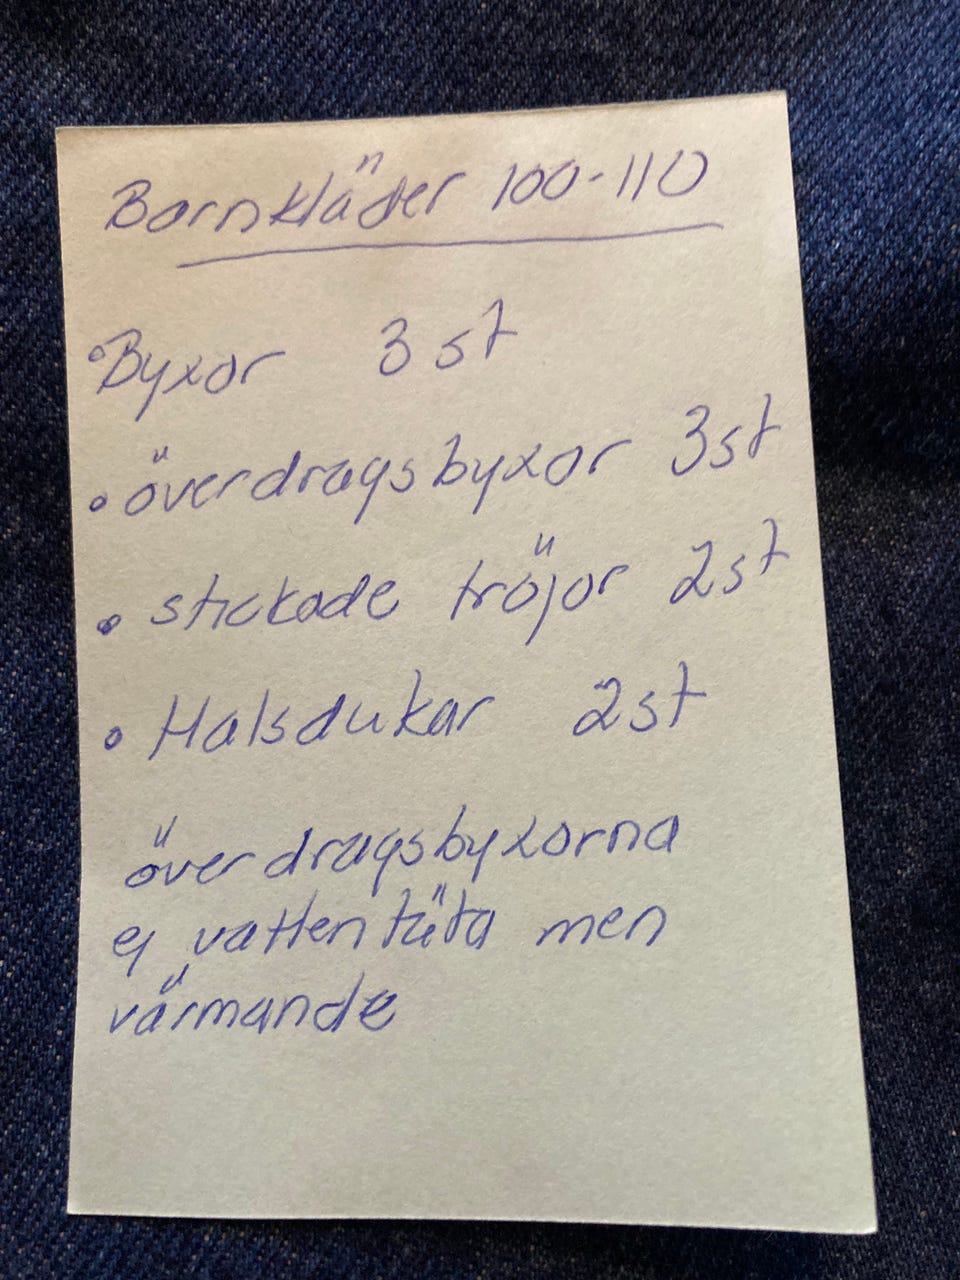 Barnkläder 100-110
• Byxor 3 st
• överdragsbyxor 3st
• stickade tröjor 2st
• Halsdukar 2st
överdragsbyxorna
ej vattentäta men
värmande